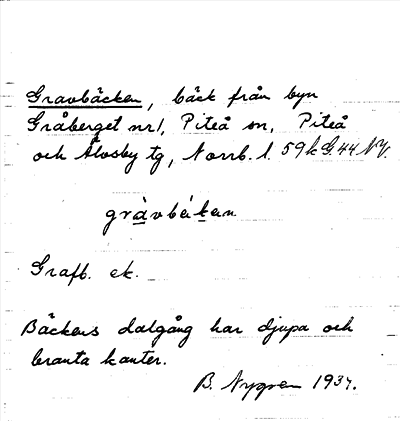 Gravbäcken, bäck från byn
Gråberget nr 1, Piteå sn, Piteå
och Älvsby tg, Norrb. l. 59 k G. 44 NV.
gràvbék̲en
Grafb. ek.
Bäckens dalgång har djupa och
branta kanter.
B. Nygren 1937.